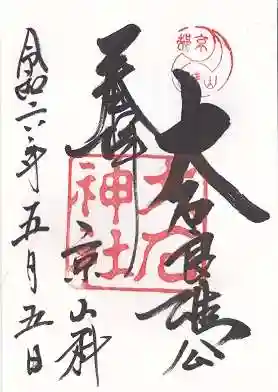 京都
山科
大石良雄公
奉拝
大石神社
京山科
令和六年五月五日